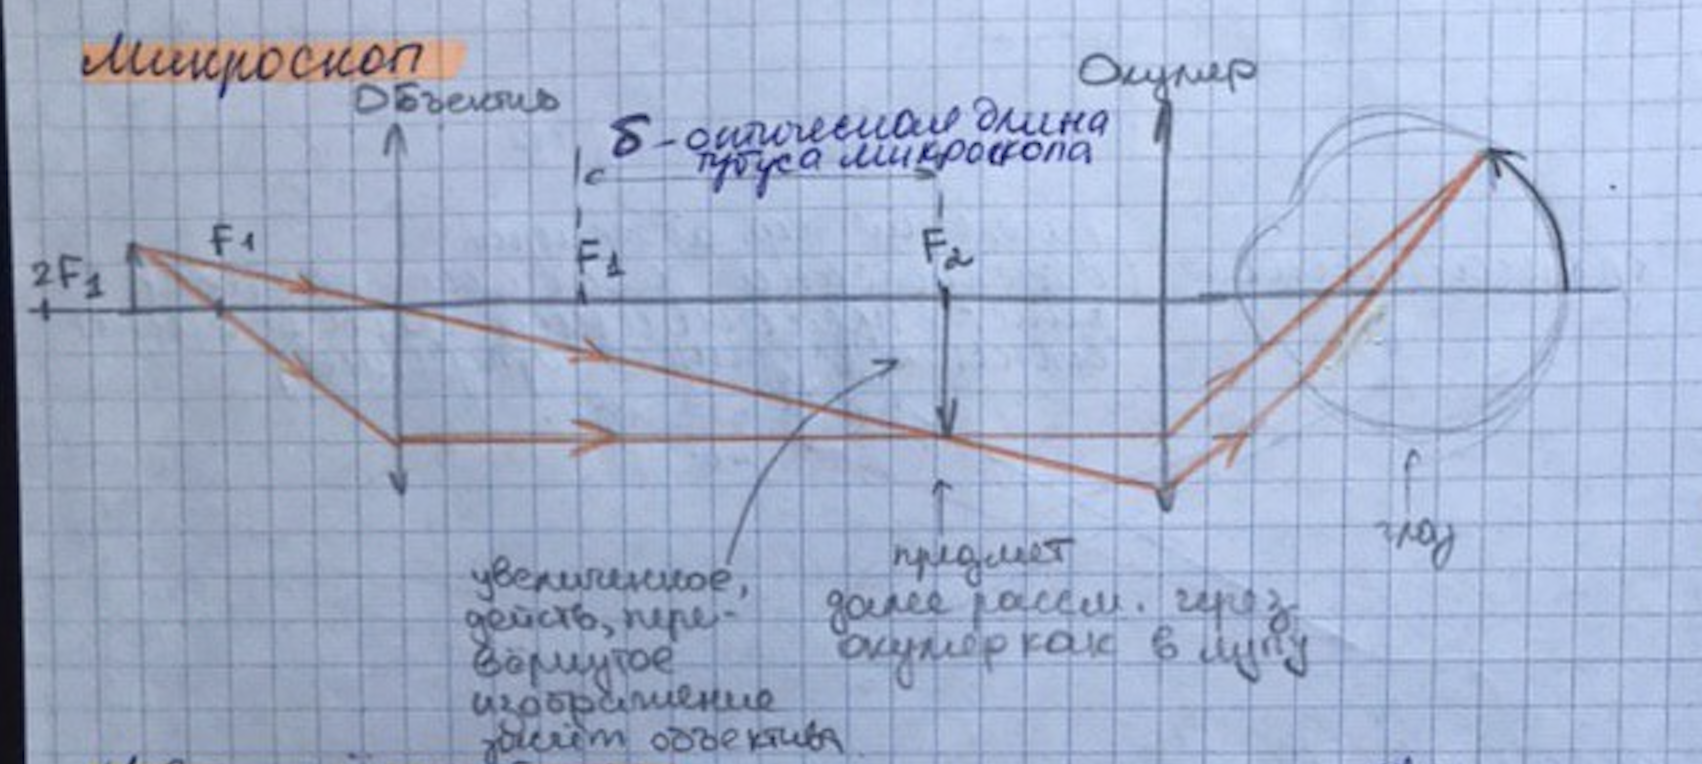 Микроскоп
Объектив
Окуляр
δ - оптическая длина
тубуса микроскопа
2F₁
F₁
F₁
F₂
глаз
увеличенное,
действ, пере-
вёрнутое
изображение
объектива
предмет
далее рассм. через
окуляр как в лупу